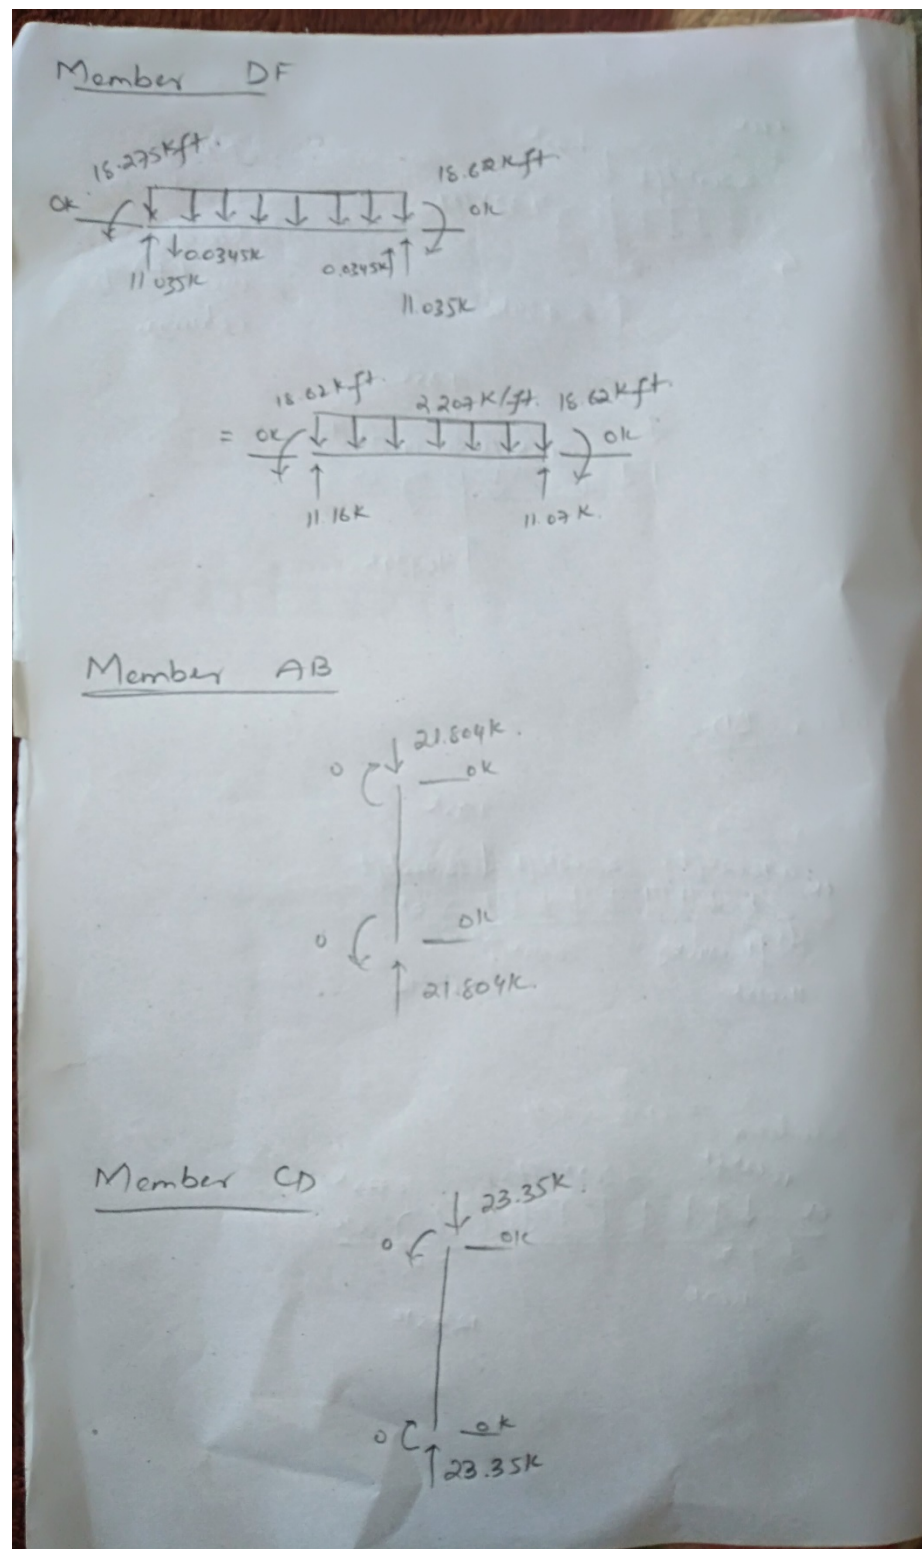 Member DF
18.275kft. 18.62kft.
0k 0k
0.0345k 0.0345k
11.035k
11.035k
18.62kft. 2.207k/ft. 18.62kft.
= 0k 0k
11.16k 11.07k.
Member AB
21.804k.
0 0k
0 0k
21.804k.
Member CD
23.35k.
0 0k
0 0k
23.35k